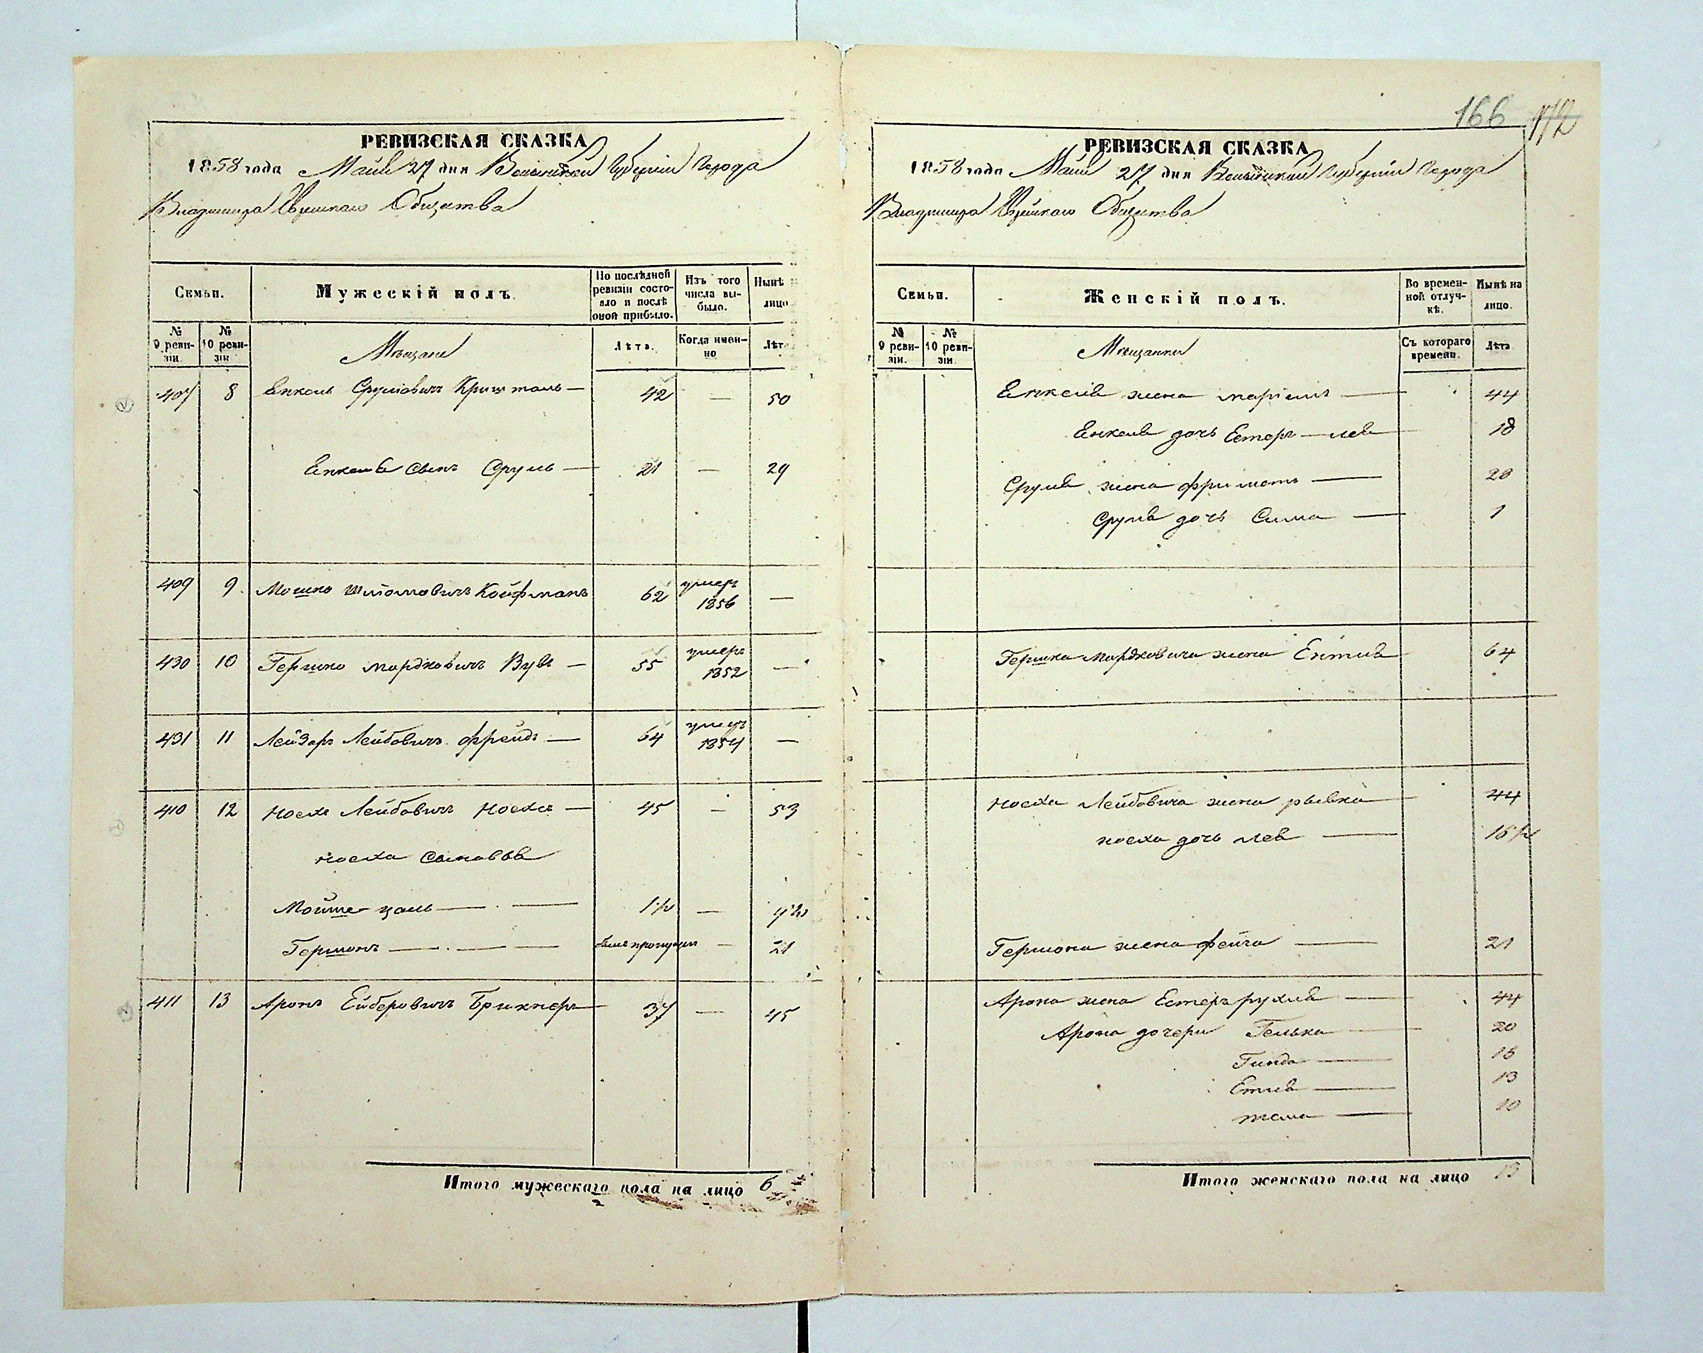 166 172
РЕВИЗСКАЯ СКАЗКА
1858 года Маія 27 дня Волынской Губерніи Города
Владимира Еврейскаго Общества
Семьи.
Мужескій полъ.
По послѣдней ревизіи состояло и послѣ оной прибыло.
Изъ того числа выбыло.
Нынѣ
лицо.
№ 9 ревизіи.
№ 10 ревизіи
Мѣщане
Лѣта.
Когда именно
Лѣта
407 8 Енкель Срулювичъ Кришталь — 42 — 50
Енкеля сынъ Сруль — 21 — 29
409 9 Мошко Шлiомовичъ Койфманъ 62 умеръ 1856 —
430 10 Гершко Мордковичъ Вувъ — 55 умеръ 1852 —
431 11 Лейзоръ Лейбовичъ Фрейдъ — 64 умеръ 1854 —
410 12 Носхъ Лейбовичъ Носхъ — 45 — 53
Носха сыновья
Мойше цаль — — 1½ — 9½
Гершонъ — — — былъ пропущен — 21
411 13 Аронъ Ейберовичъ Брикнеръ — 37 — 45
Итого мужескаго пола на лицо 6
РЕВИЗСКАЯ СКАЗКА
1858 года Маія 27 дня Волынской Губерніи Города
Владимира Еврейскаго Общества
Семьи.
Женскій полъ.
Во временной отлучкѣ.
Нынѣ на лицо.
№ 9 ревизіи.
№ 10 ревизіи.
Мѣщанки
Съ котораго времени.
Лѣта
Енкеля жена Маріемъ — 44
Енкеля дочь Естеръ — Лея 18
Сруля жена Фриметъ — 28
Сруля дочь Сима — 1
Гершка Мордковича жена Ентля 64
Носха Лейбовича жена Рывка 44
Носха дочь Лея — 16½
Гершона жена Фейга — 21
Арона жена Естеръ Рухля — 44
Арона дочери Гелька — 20
Гинда — 16
Етля — 13
тема — 10
Итого женскаго пола на лицо 13